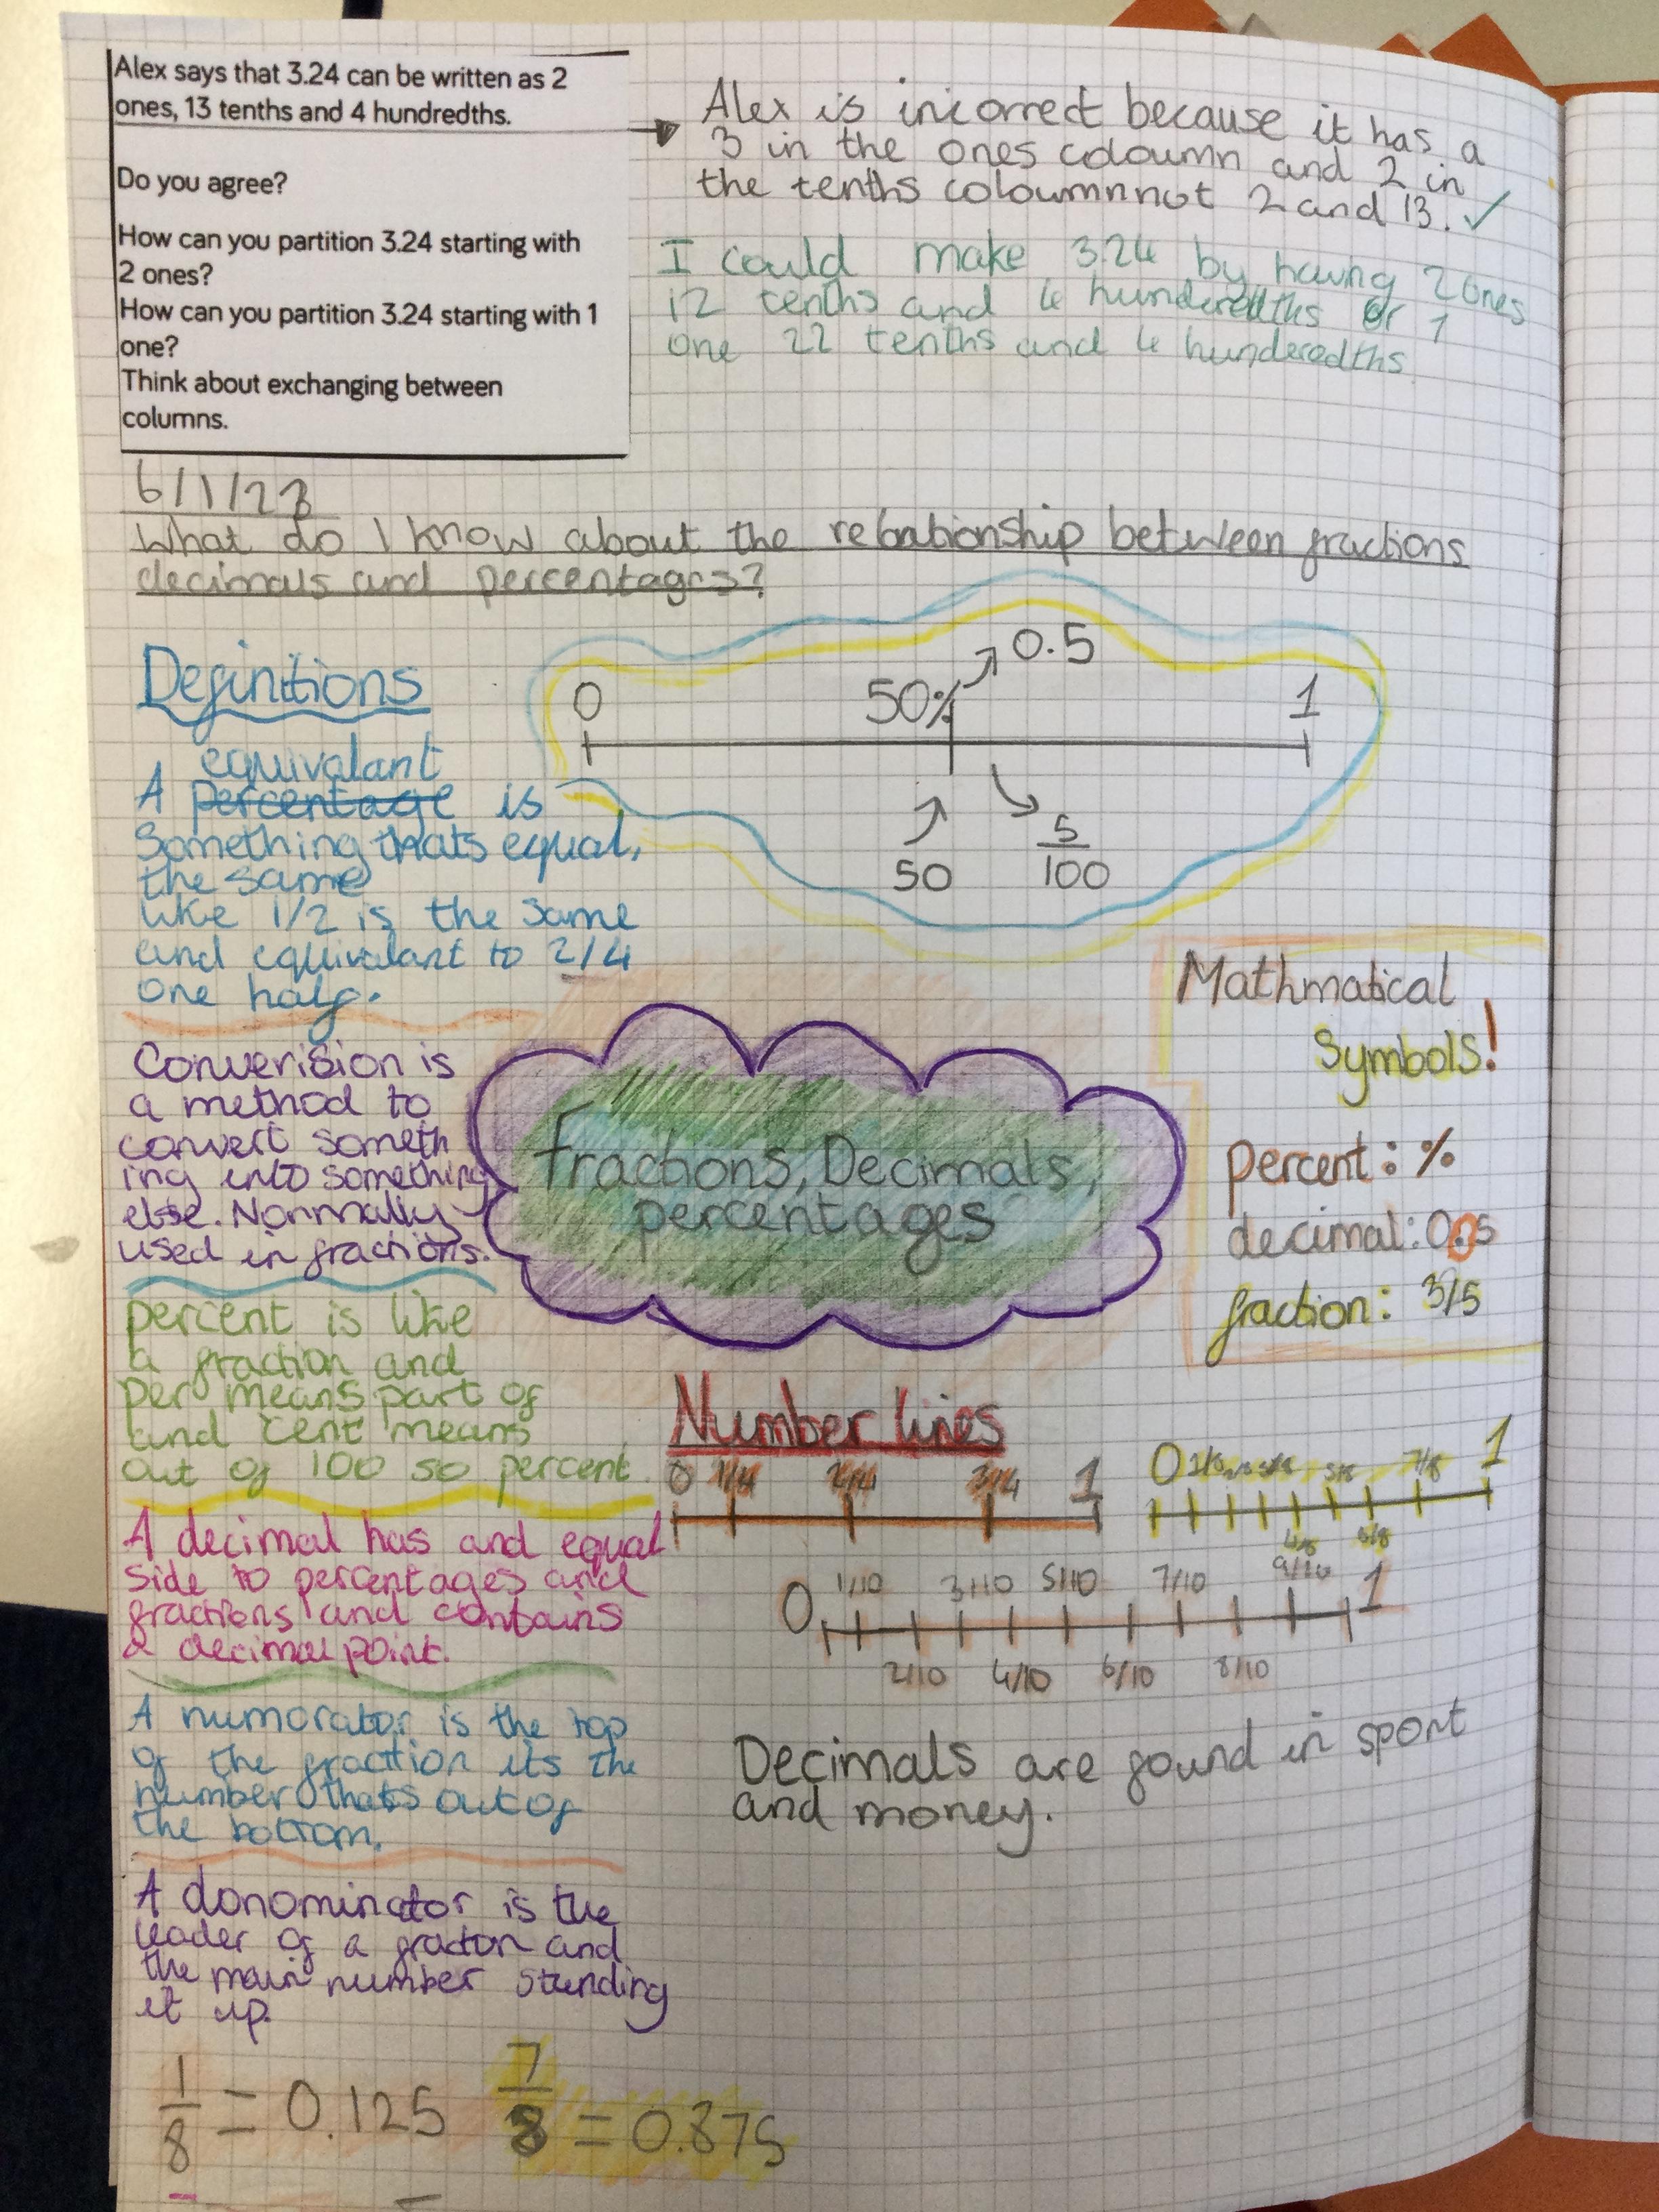 Alex says that 3.24 can be written as 2
ones, 13 tenths and 4 hundredths.
Do you agree?
How can you partition 3.24 starting with
2 ones?
How can you partition 3.24 starting with 1
one?
Think about exchanging between
columns.
Alex is incorrect because it has a
3 in the ones coloumn and 2 in
the tenths coloumn not 2 and 13. ✓
I could make 3.24 by having 2 ones
12 tenths and 4 hunderedths or 1
one 22 tenths and 4 hunderedths
6/1/23
What do I know about the relationship between fractions
decimals and percentages?
Definitions
equivalant
A percentage is
something thats equal,
the same
like 1/2 is the same
and equivalant to 2/4
one half.
0
50%
0.5
1
50
5
100
Converision is
a method to
convert someth
ing into something
else. Normally
used in fractions.
Fractions, Decimals,
percentages
Mathmatical
Symbols!
percent: %
decimal: 0.5
fraction: 3/5
percent is like
a fraction and
per means part of
and cent means
out of 100 so percent
Number lines
0 1/4 2/4 3/4 1
0 1/8 2/8 3/8 5/8 7/8 1
4/8 6/8
0 1/10 3/10 5/10 7/10 9/10 1
2/10 4/10 6/10 8/10
A decimal has and equal
side to percentages and
fractions and contains
a decimal point.
A numorator is the top
of the fraction its the
number thats out of
the bottom.
Decimals are found in sport
and money.
A donominator is the
leader of a fracton and
the main number standing
it up.
1
8 = 0.125
7
8 = 0.875